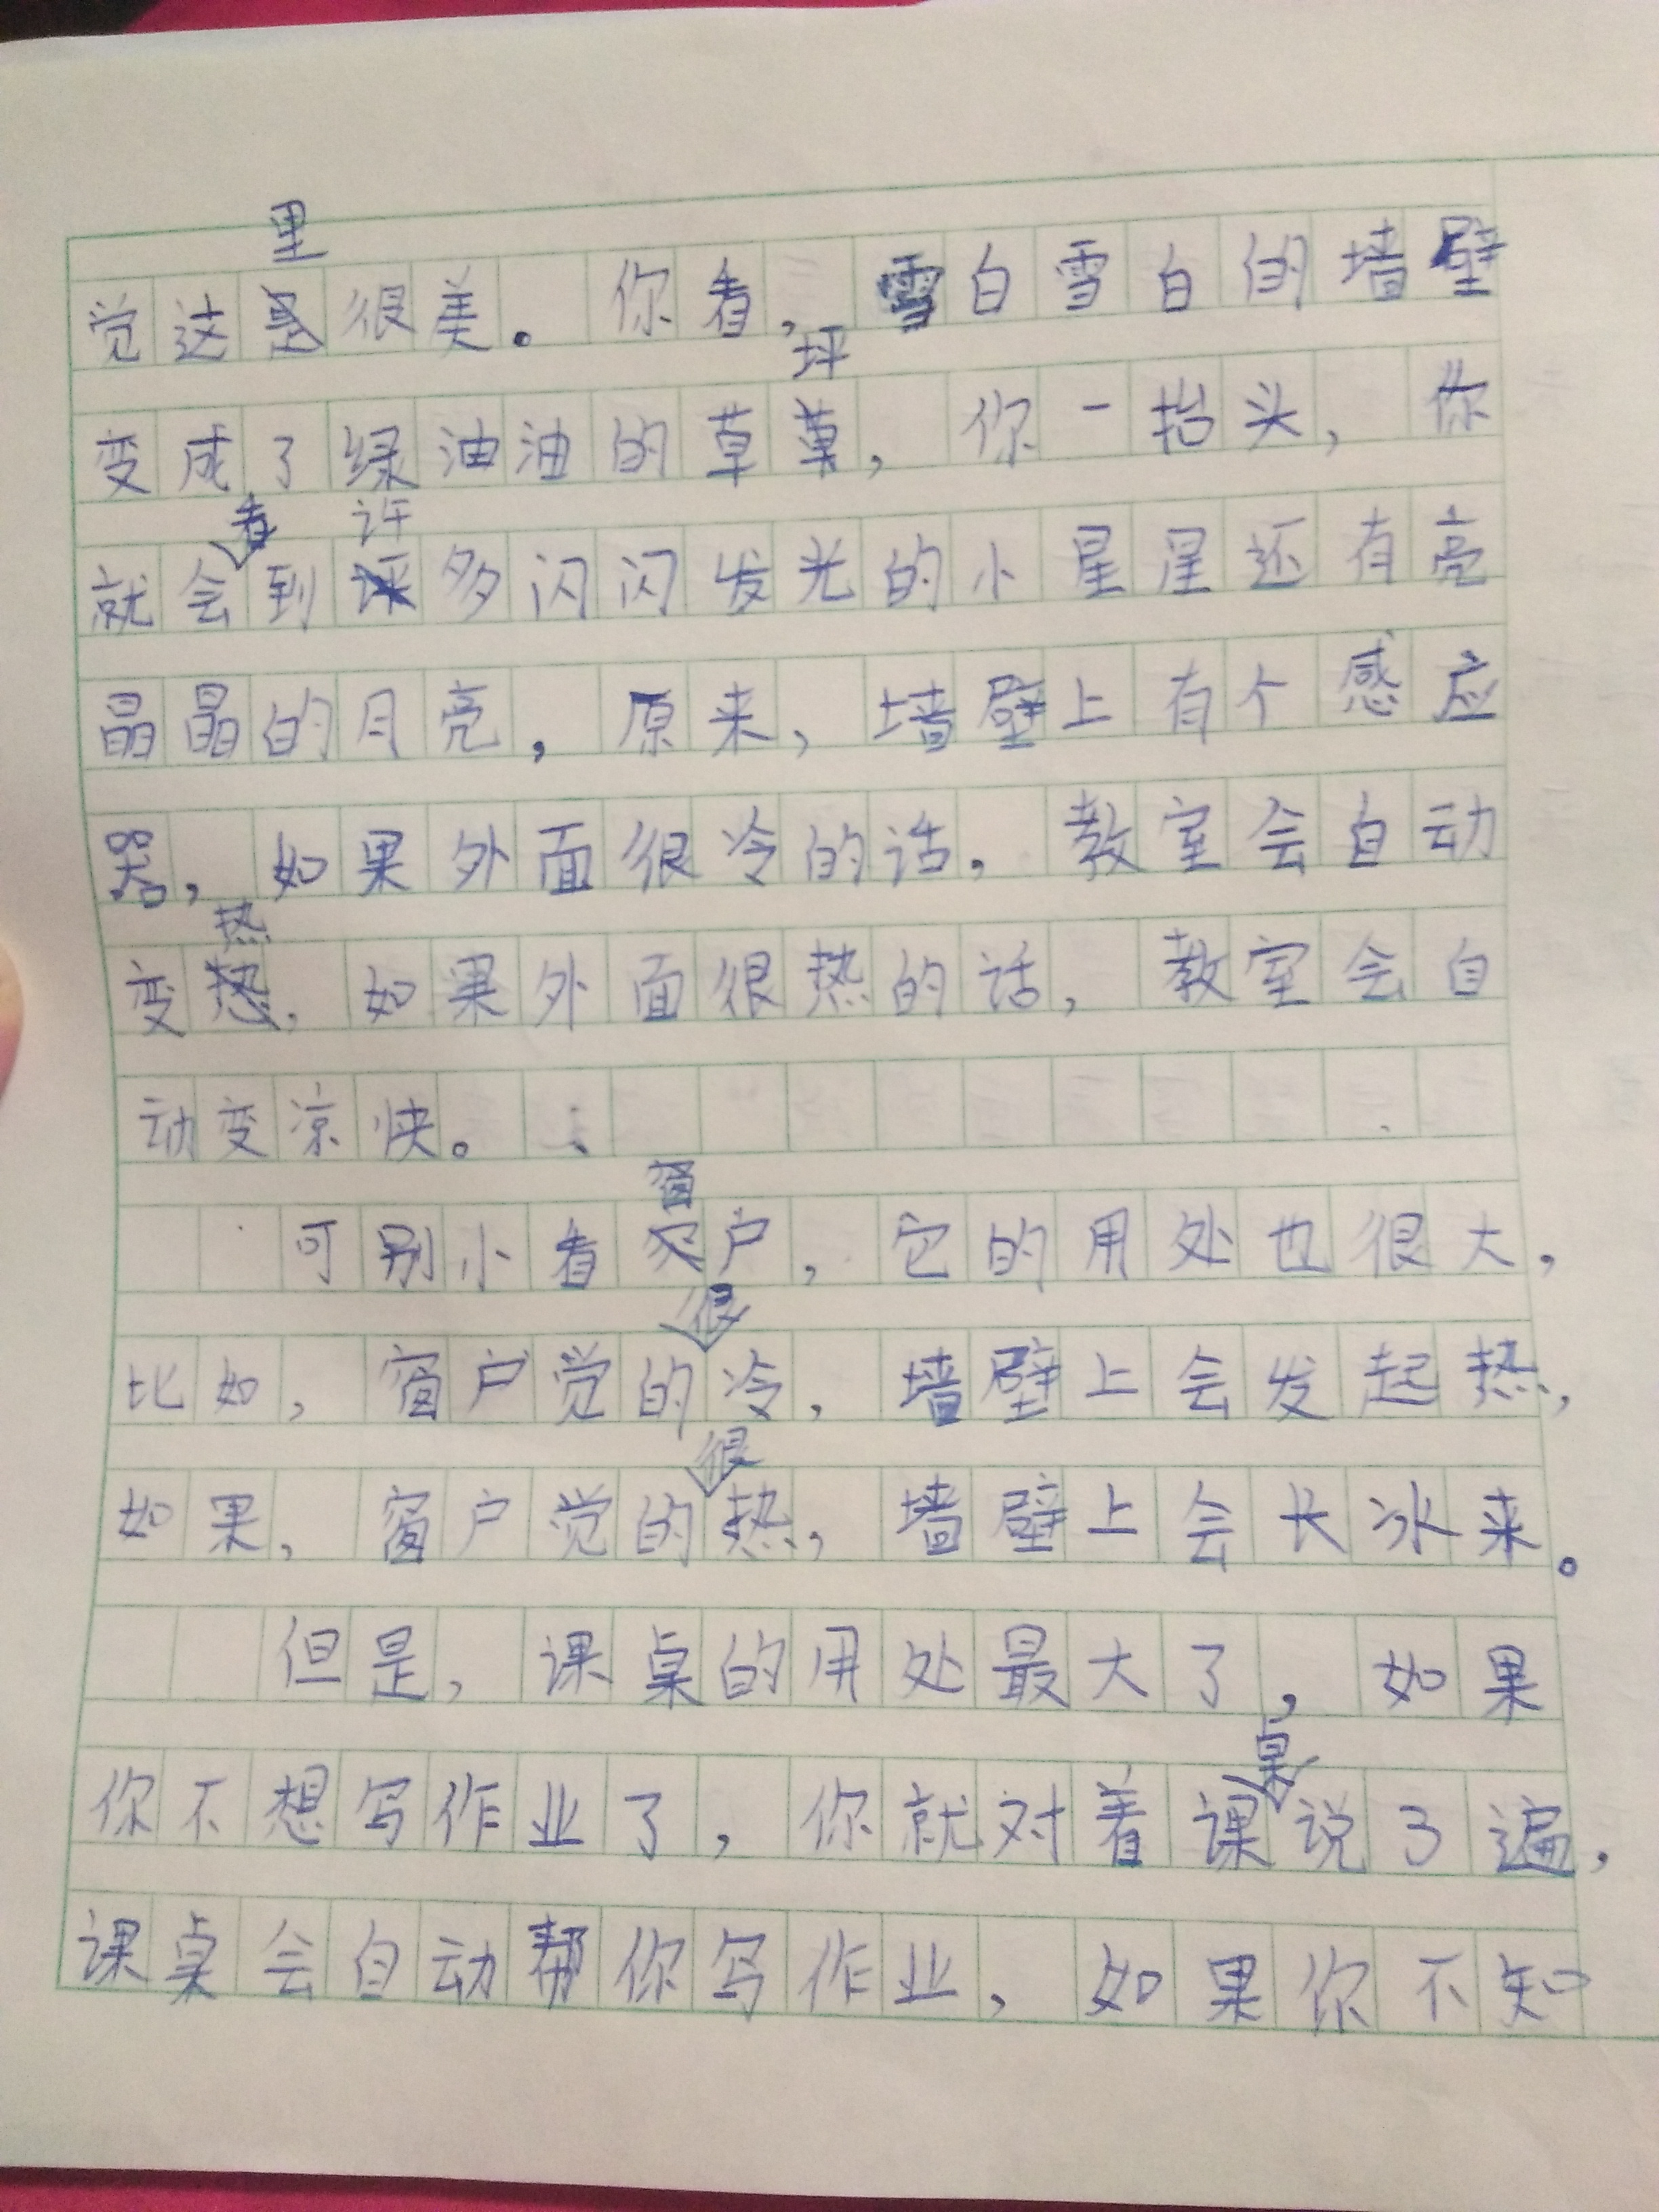 觉这里很美。你看，雪白雪白的墙壁
变成了绿油油的草坪，你一抬头，你
就会看到许多闪闪发光的小星星还有亮
晶晶的月亮，原来，墙壁上有个感应
器，如果外面很冷的话，教室会自动
变热，如果外面很热的话，教室会自
动变凉快。
可别小看窗户，它的用处也很大，
比如，窗户觉的很冷，墙壁上会发起热，
如果，窗户觉的很热，墙壁上会长冰来。
但是，课桌的用处最大了，如果
你不想写作业了，你就对着课桌说了遍，
课桌会自动帮你写作业，如果你不知